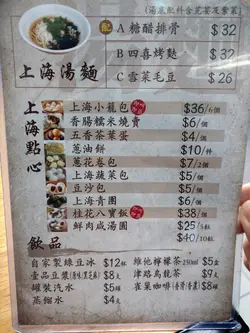 (湯底配料含芫荽及紫菜)
配 A 糖醋排骨 $32
B 四喜烤麵 $32
C 雪菜毛豆 $26
上海湯麵
上海點心
上海小籠包 $36/6個
香腸糯米燒賣 $6/個
五香茶葉蛋 $4/個
蔥油餅 $10/件
蔥花卷包 $7/2個
上海蔬菜包 $5/個
豆沙包 $5/個
上海青團 $6/個
桂花八寶飯 $38/個
鮮肉咸湯圓 $25/5粒
$40/10粒
飲品
自家製綠豆冰 $12杯
壹品豆漿 $8支
罐裝汽水 $5罐
蒸餾水 $4支
維他檸檬茶250ml $5盒
津路烏龍茶 $9支
雀巢咖啡 $8罐